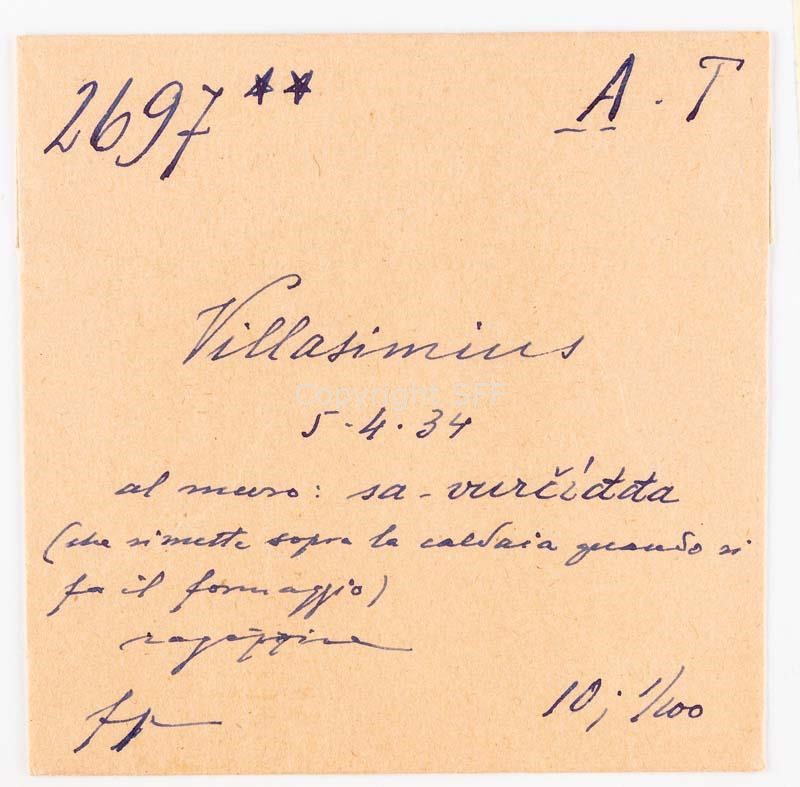 2697 ** A. T
Villasimius
Copyright SFF
5.4.34
al muro: sa-vurčíđđa
(che si mette sopra la caldaia quando si
fa il formaggio)
ragazzine
fp
10; 1/100